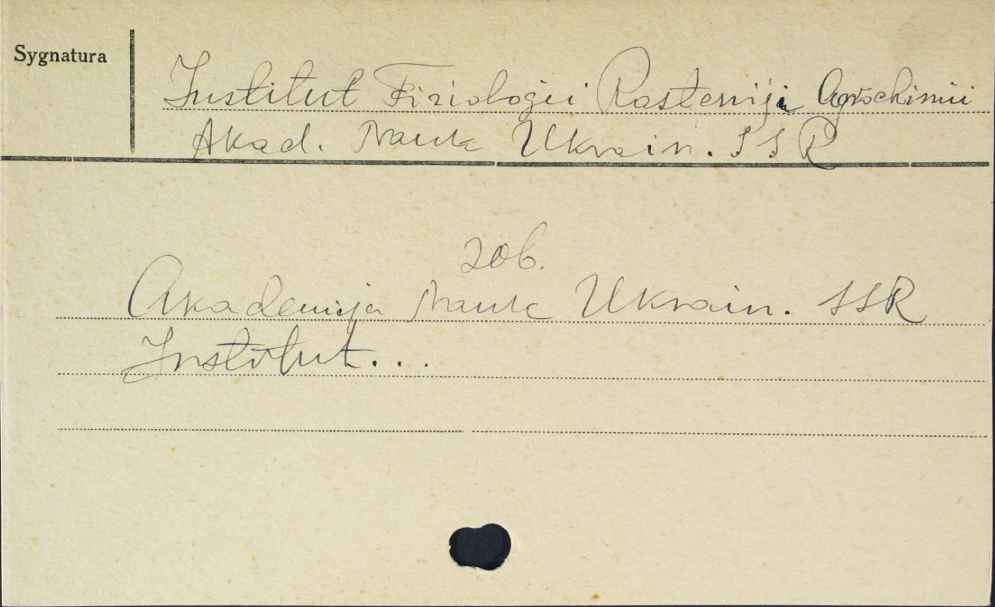 Sygnatura
Institut Fiziologii Rastenij i Agrochimii
Akad. Nauk Ukrain. SSR
zob.
Akademija Nauk Ukrain. SSR
Institut...